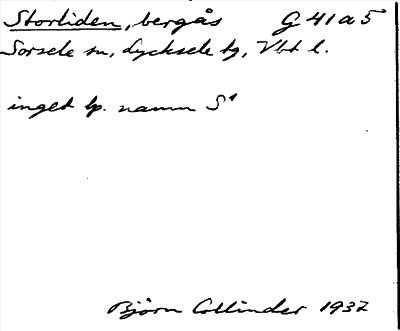 Storliden, bergås G 41 a 5
Sorsele sn, Lycksele tg, Vbt l.
inget lp. namn S¹
Björn Collinder 1937